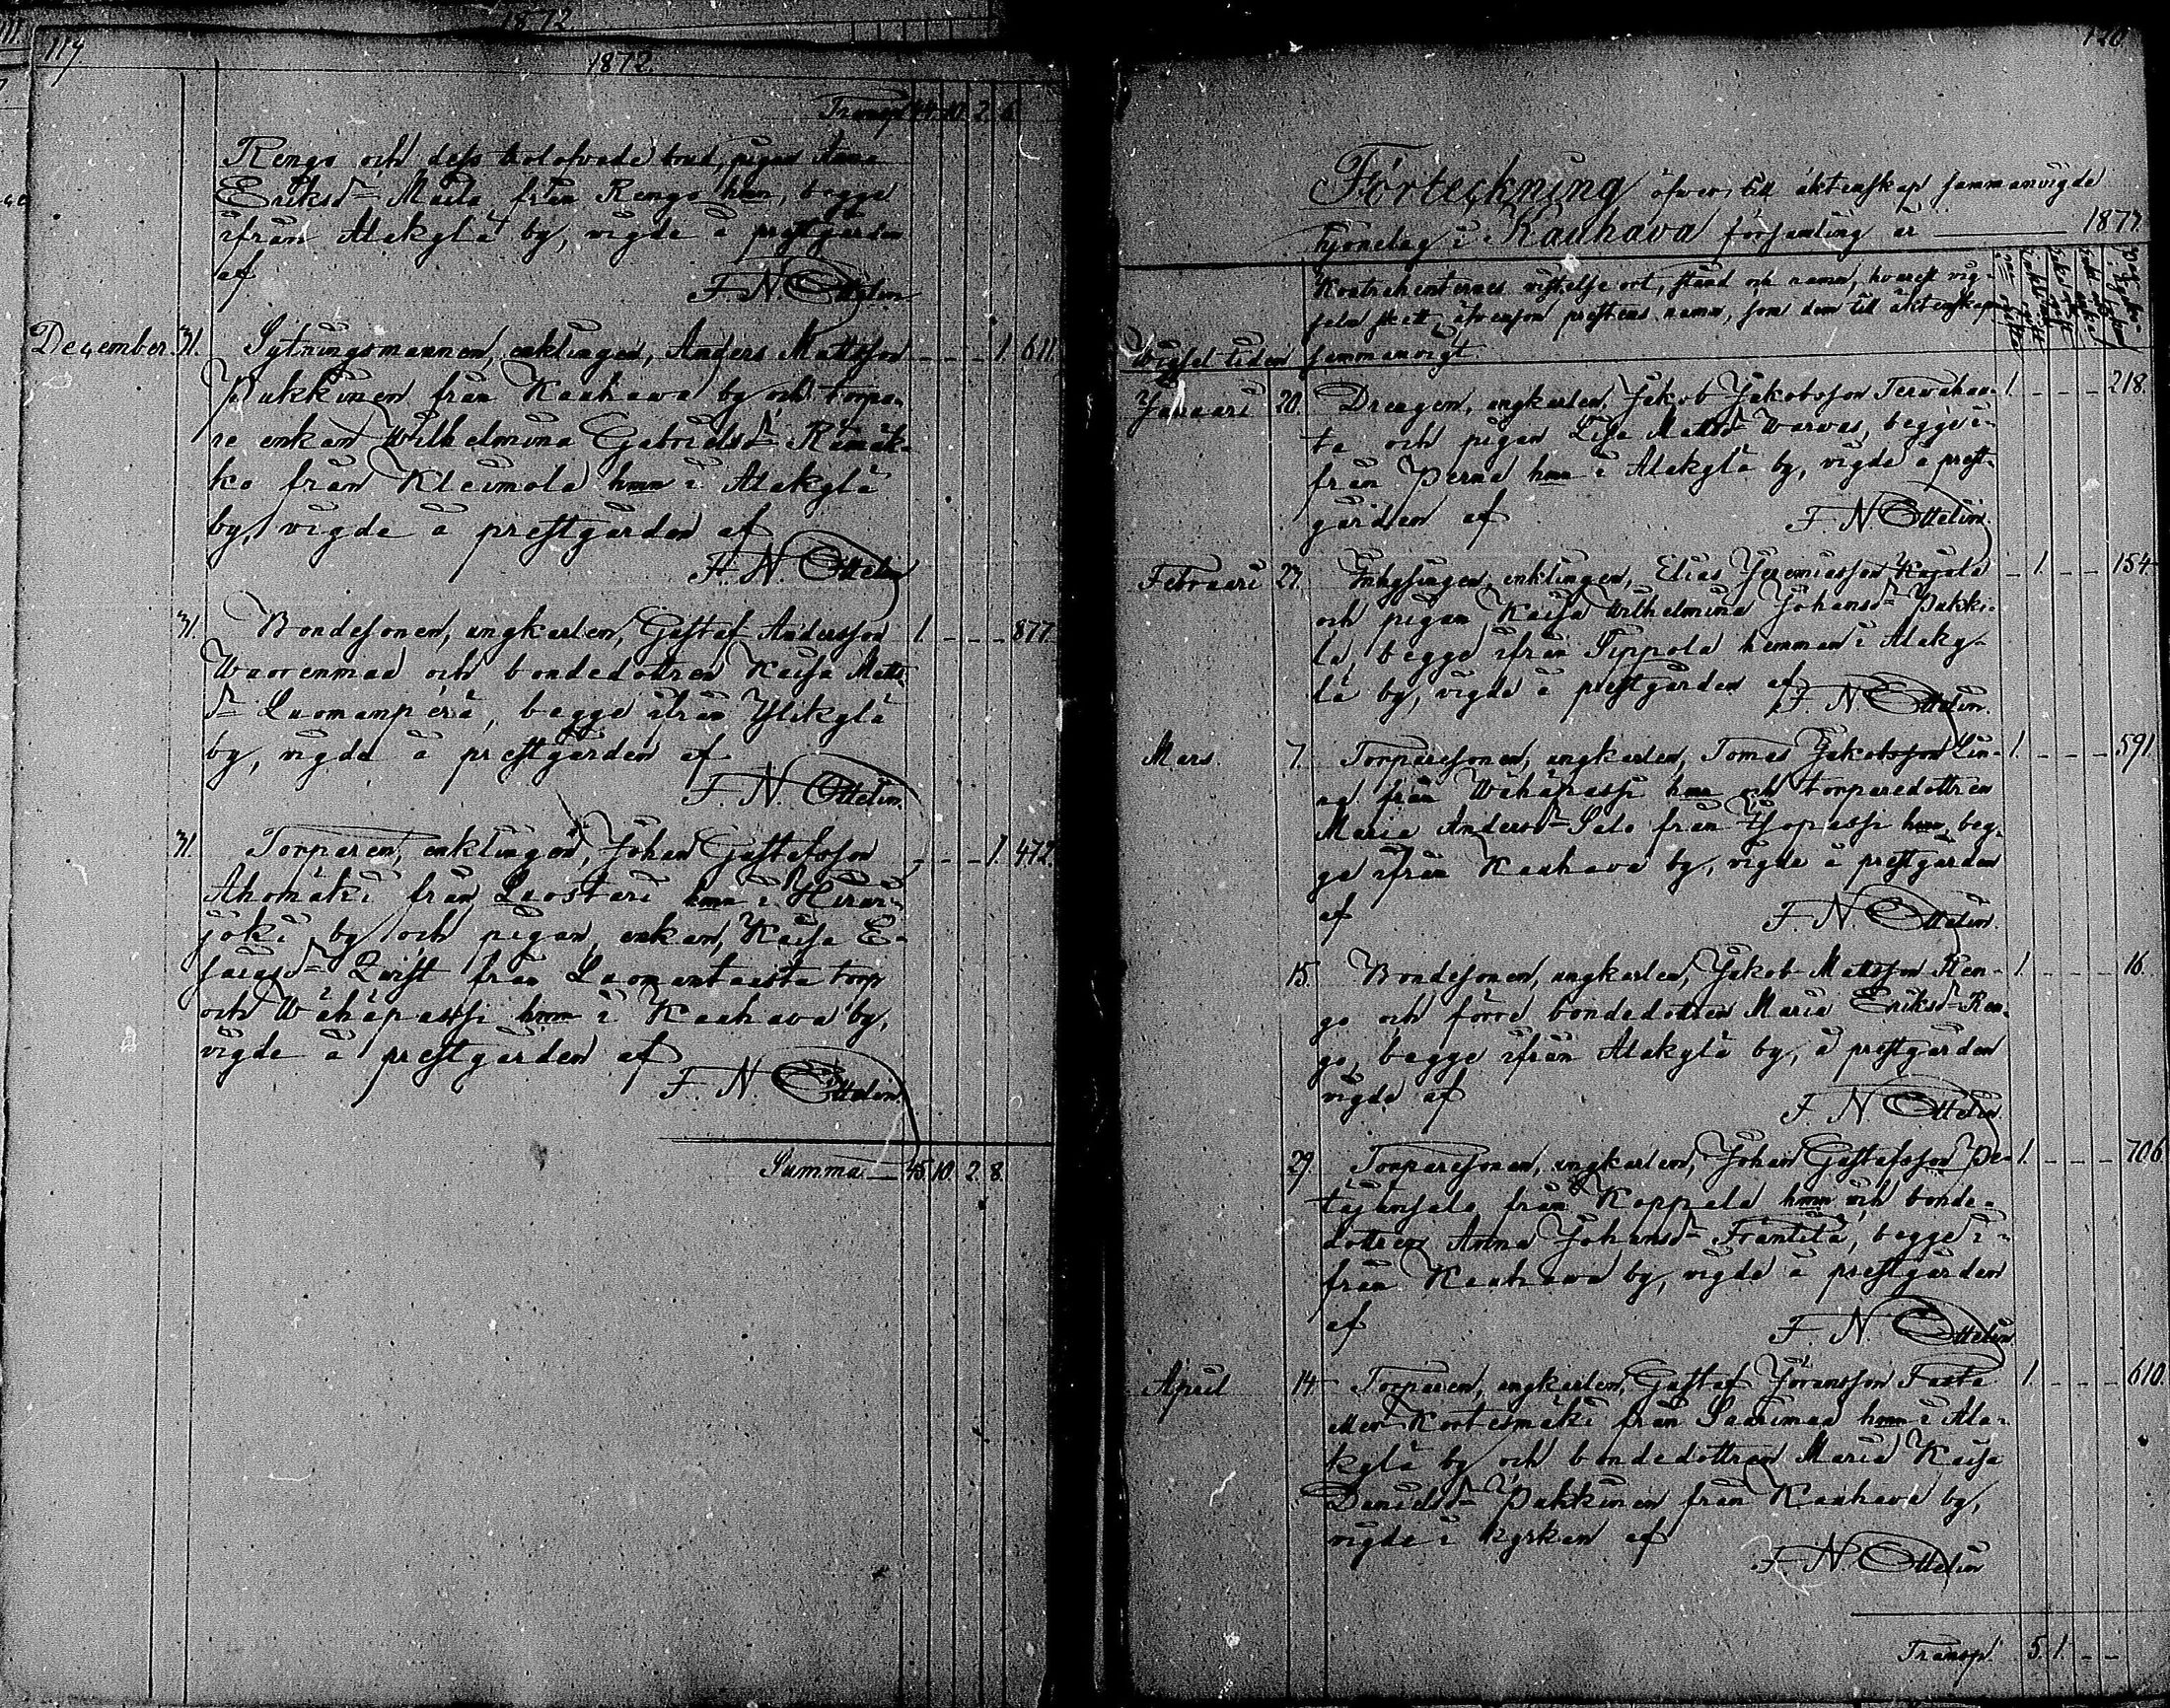 1872
119
1872.
Transp. 44. 10. 2. 6.
Rengo och dess trolofvade brud, pigan Anna
Eriksdr Maila från Rengo hmn, begge
ifrån Alakylä by, vigde å prestgården
af
F. N. Ottelin
December 31. Sytningsmannen, enklingen, Anders Mattsson - - - 1. 611.
Pukkinen från Kauhava by och torpa-
re enkan Wilhelmina Gabrielsdr Rimäk-
ko från Kleimola hmn i Alakylä
by, vigde å prestgården af
F. N. Ottelin
31. Bondesonen, ungkarlen, Gustaf Andersson 1. - - - 877.
Wuorenmaa och bondedottren Kaisa Matts-
dr Luomanperä, begge ifrån Ylikylä
by, vigde å prestgården af
F. N. Ottelin.
31. Torparen, enklingen, Johan Gustafsson - - - 1. 472.
Ahomäki från Luostari hmn i Hirvi-
joki by och pigan, enkan, Kaisa E-
saiasdr Qvist från Luomantausta torp
och Wähäpassi hmn i Kauhava by,
vigde å prestgården af
F. N. Ottelin.
Summa — 45. 10. 2. 8.
120
Förteckning öfver till äktenskap sammanvigde
hjonelag i Kauhava församling år — 1877.
Kontrahenternes vistelse ort, stånd och namn, hvarest vig-
seln skett, äfvensom prestens namn, som dem till äktenskap
Vigsel-tiden sammanvigt.
Januari 20. Drengen, ungkarlen, Jakob Jakobsson Tervahau- 1. - - - 218.
ta och pigan Lisa Mattsdr Warvas, begge i-
från Perna hmn i Alakylä by, vigde å prest-
gården af F N Ottelin.
Februari 27. Inhysingen, enklingen, Elias Jeremiasson Kajala - 1. - - 154
och pigan Kaisa Wilhelmina Johansdr Pukki-
la, begge ifrån Sippola hemman i Alaky-
lä by, vigde å prestgården af F. N Ottelin.
Mars. 7. Torparesonen, ungkarlen, Tomas Jakobsson Lin- 1. - - - 591.
na från Wähäpassi hmn och torparedottren
Maria Andersdr Salo från Isopassi hmn, beg-
ge ifrån Kauhava by, vigde å prestgården
af F. N. Ottelin.
15. Bondesonen, ungkarlen, Jakob Mattsson Ren- 1. - - - 16.
go och förre bondedottren Maria Eriksdr Ren-
go, begge ifrån Alakylä by, å prestgården
vigde af F. N. Ottelin.
29. Torparesonen, ungkarlen, Johan Gustafsson Pe- 1. - - - 706.
täjänsalo från Koppela hmn och bonde-
dottren Anna Johansdr Fräntilä, begge i-
från Kauhava by, vigde å prestgården
af F. N. Ottelin
April 14. Torparen, ungkarlen, Gustaf Göransson Fasta 1. - - - 610.
eller Kortesmäki från Saarimaa hmn i Ala-
kylä by och bondedottren Maria Kaisa
Danielsdr Pukkinen från Kauhava by,
vigde i kyrkan af
F. N. Ottelin
Transp. 5. 1. - -